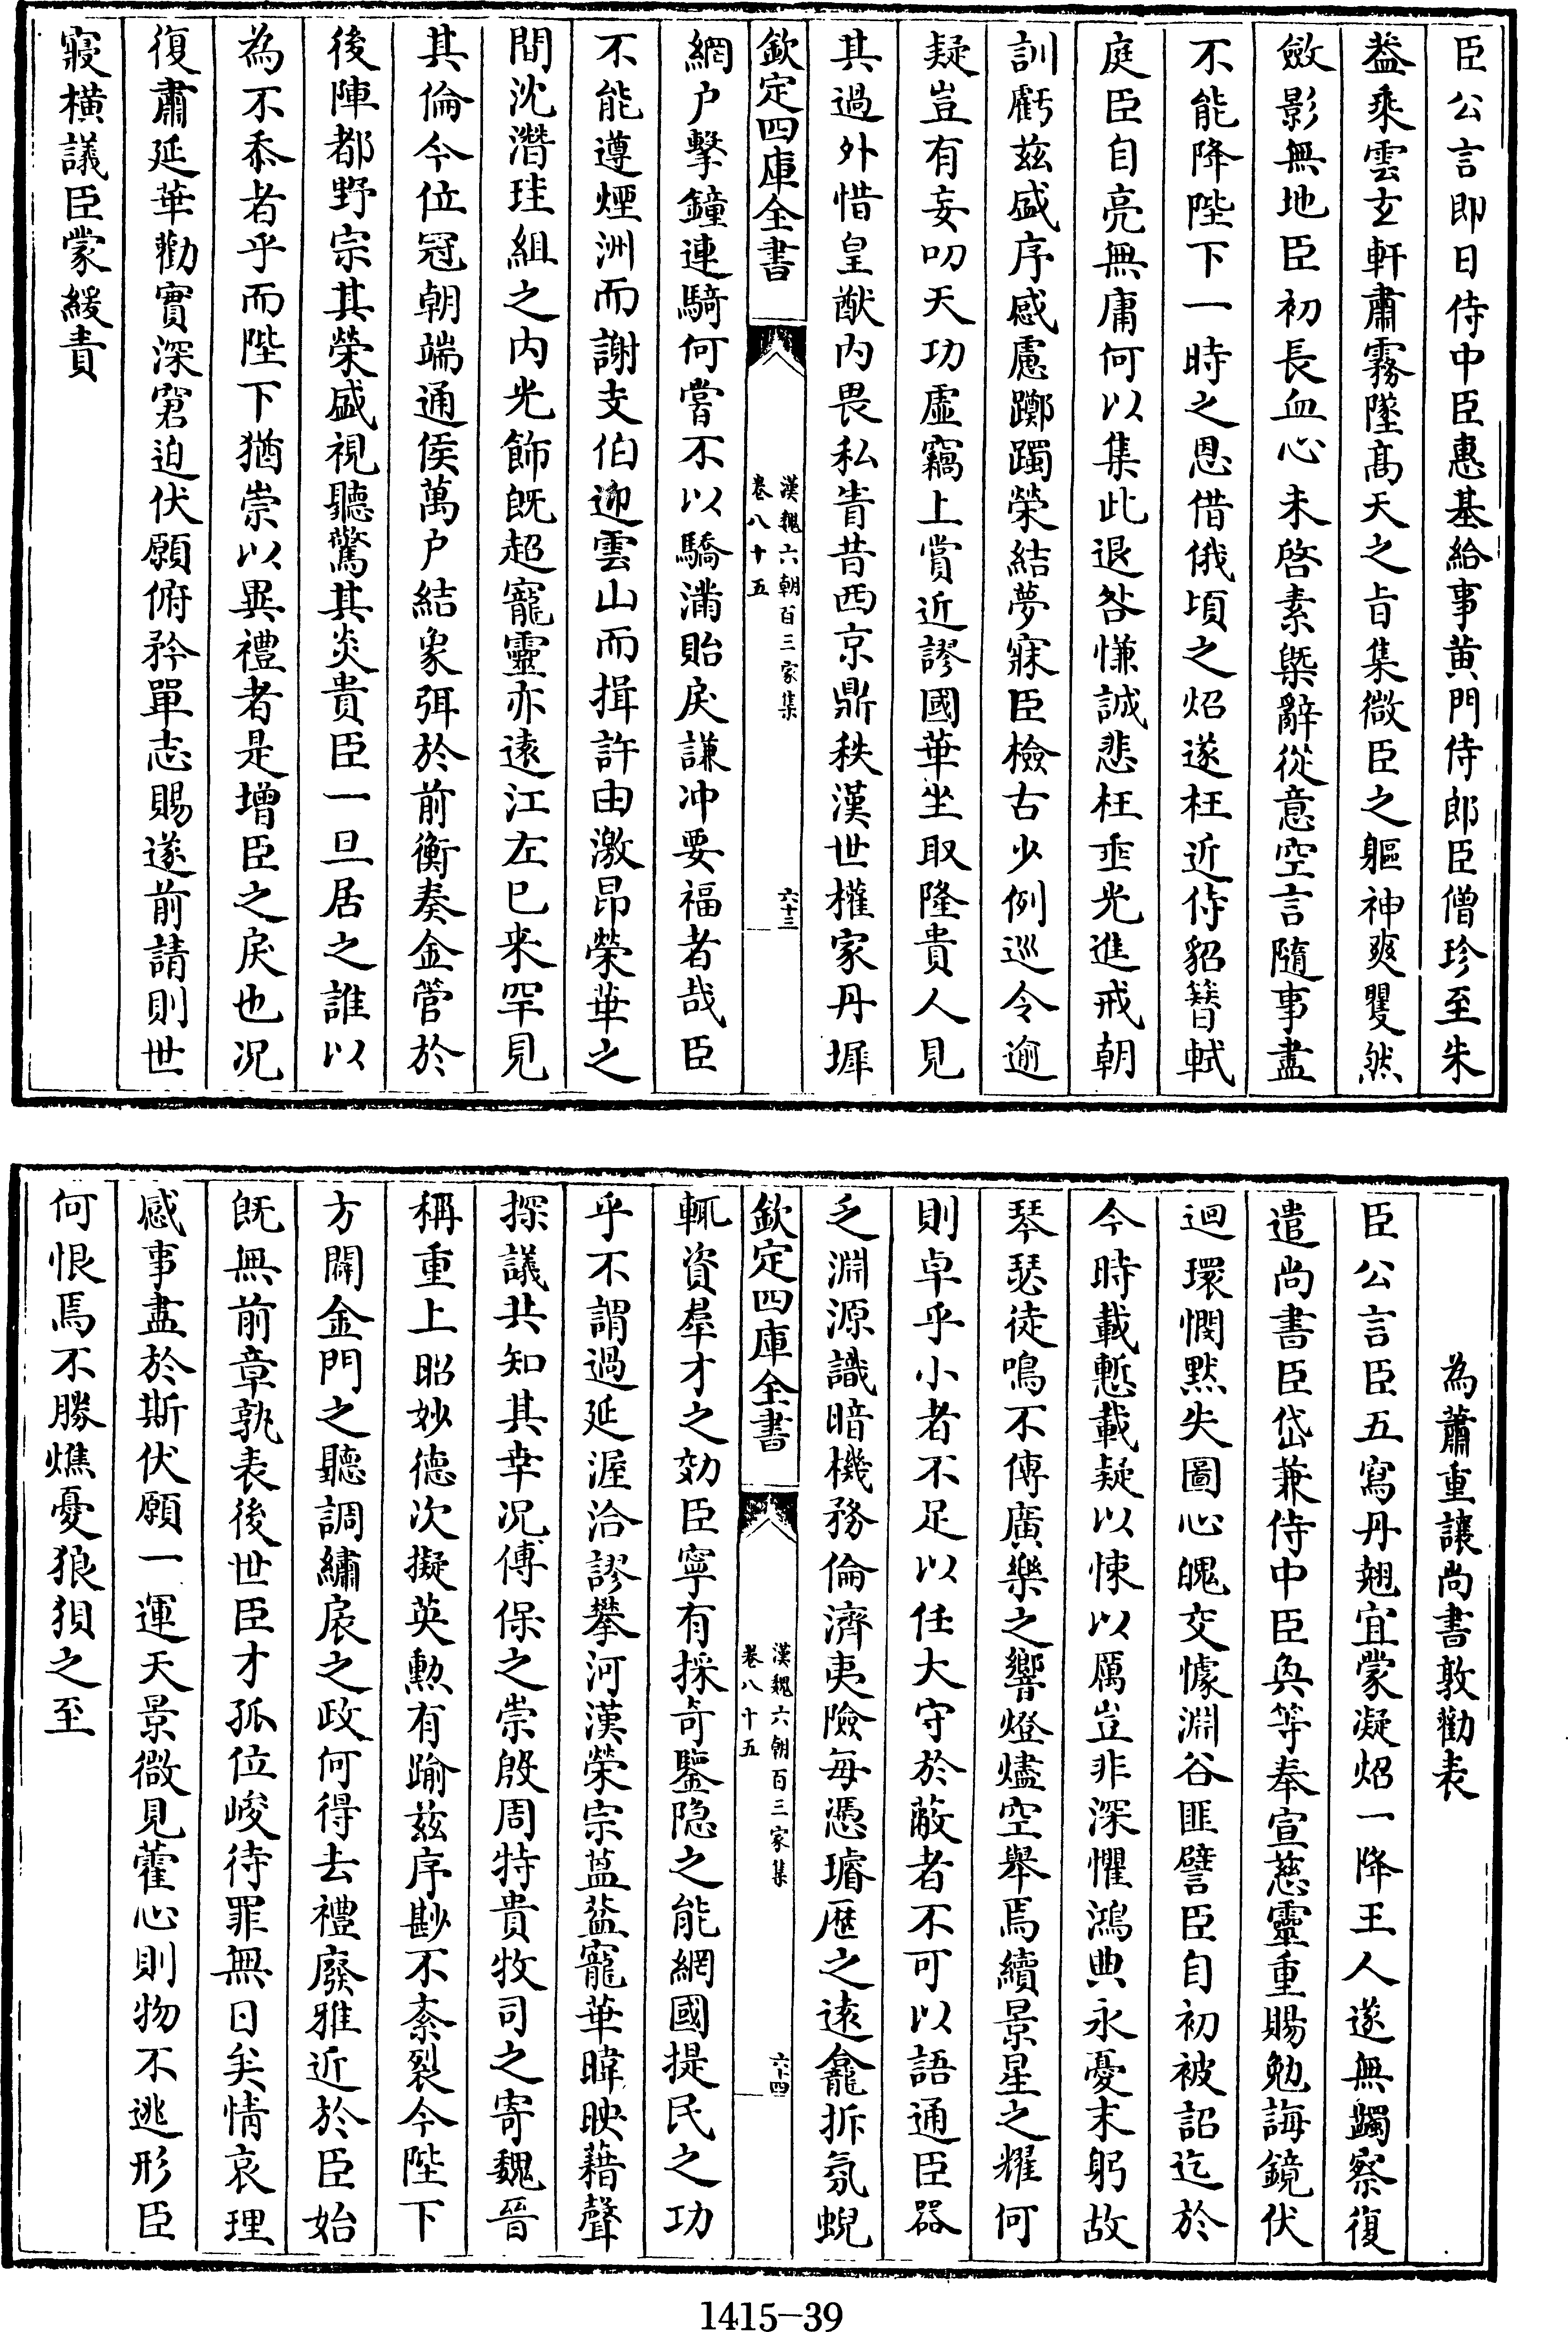 臣公言即日侍中臣惠基給事黄門侍郎臣僧珍至朱
葢乘雲玄軒肅霧墜髙天之㫖集微臣之軀神爽瞿然
斂影無地臣初長血心未啓素槩辭從意空言隨事盡
不能降陛下一時之恩借俄頃之炤遂枉近侍貂簪軾
庭臣自亮無庸何以集此退咎慊誠悲枉垂光進戒朝
訓虧兹盛序感慮躑躅榮結夢寐臣檢古少例巡今逾
疑豈有妄叨天功虛竊上賞近謬國華坐取隆貴人見
其過外惜皇猷内畏私眚昔西京鼎秩漢世權家丹墀
欽定四庫全書
漢魏六朝百三家集
卷八十五
六十三
網户擊鐘連騎何嘗不以驕滿貽戾謙冲要福者哉臣
不能遵煙洲而謝支伯迎雲山而揖許由激昂榮華之
間沈潛珪組之内光飾既超寵靈亦遠江左已来罕見
其倫今位冠朝端通侯萬户結象弭於前衡奏金管於
後陣都野宗其榮盛視聽驚其炎貴臣一旦居之誰以
為不忝者乎而陛下猶崇以異禮者是增臣之戾也况
復肅延華勸實深窘迫伏願俯矜單志賜遂前請則世
寢橫議臣蒙緩責
為蕭重讓尚書敦勸表
臣公言臣五寫丹翹宜蒙凝炤一降王人遂無蠲察復
遣尚書臣岱兼侍中臣奐等奉宣慈靈重賜勉誨鏡伏
迴環憫黙失圖心魄交懅淵谷匪譬臣自初被詔迄於
今時載慙載疑以悚以厲豈非深懼鴻典永憂末躬故
琴瑟徒鳴不傳廣樂之響燈燼空舉焉續景星之耀何
則卓乎小者不足以任大守於蔽者不可以語通臣器
乏淵源識暗機務倫濟夷險每憑璿厯之遠龕拆氛蜺
欽定四庫全書
漢魏六朝百三家集
卷八十五
六十四
輒資羣才之効臣寧有採竒鑒隐之能網國提民之功
乎不謂過延渥洽謬攀河漢榮宗藴葢寵華暐映藉聲
探議共知其幸况傅保之崇殷周特貴牧司之寄魏晉
稱重上昭妙德次擬英勲有踰兹序尠不紊裂今陛下
方闢金門之聽調繡扆之政何得去禮廢雅近於臣始
既無前章孰表後世臣才孤位峻待罪無日矣情哀理
感事盡於斯伏願一運天景微見藿心則物不逃形臣
何恨焉不勝燋憂狼狽之至
1415-39